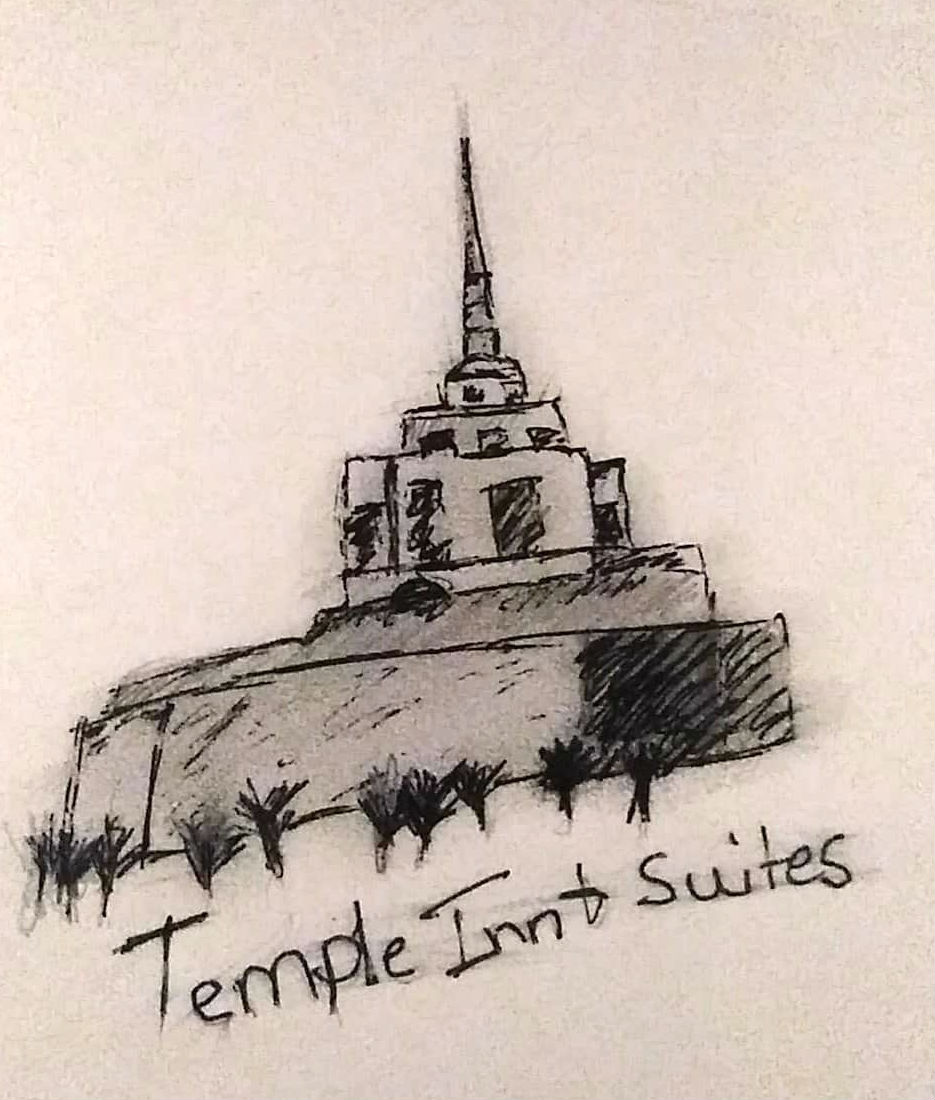 Temple Inn & Suites